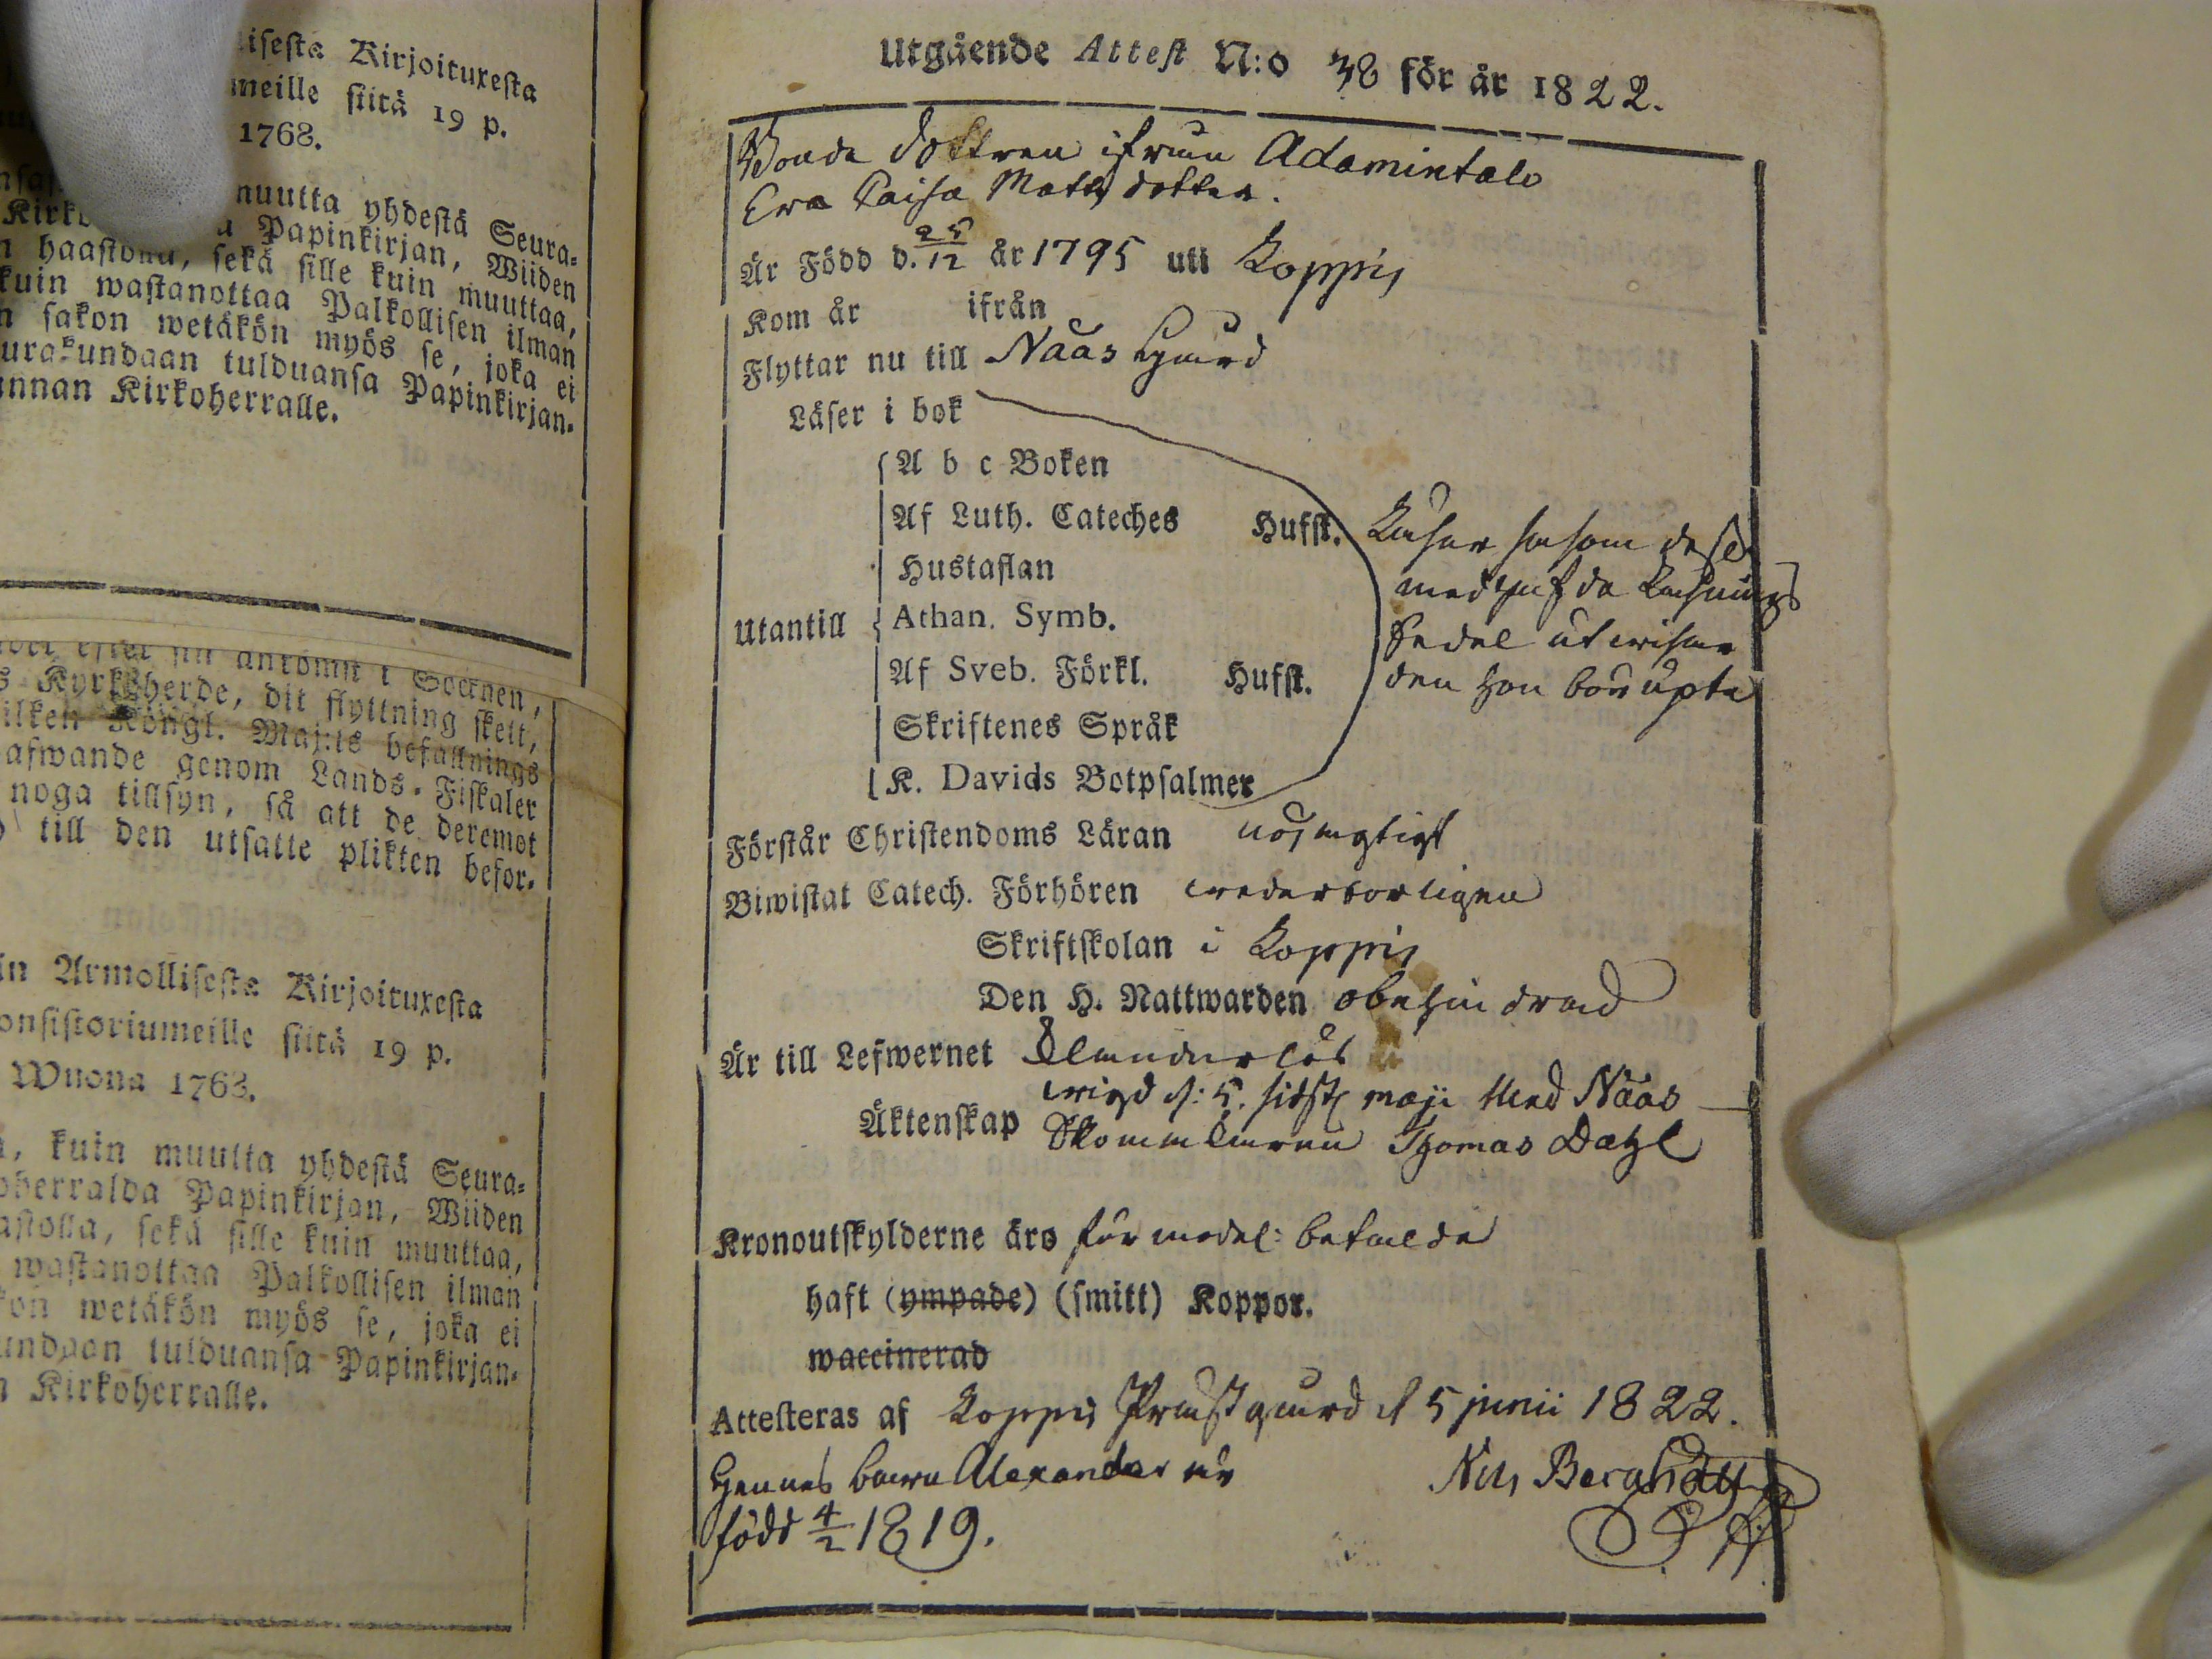 lisesta Kirjoituxesta
meille siitä 19 p.
1768.
muutta yhdestä Seura-
Papinkirjan, Wiiden
haastolla, sekä sille kuin muuttaa,
kuin wastanottaa Palkollisen ilman
n sakon wetäkön myös se, joka ei
urakundaan tulduansa Papinkirjan-
unnan Kirkoherralle.
efter sin ankomst i Socknen,
s Kyrkoherde, dit flyttning skett,
ilken Kongl. Maj:ts befallnings
afwande genom Lands-Fiskaler
noga tillsyn, så att de deremot
till den utsatte plikten befor-
in Armollisesta Kirjoituxesta
onsistoriumeille siitä 19 p.
Wuona 1763.
, kuin muulta yhdestä Seura-
oherralda Papinkirjan, Wiiden
astolla, sekä sille kuin muuttaa,
wastanottaa Palkollisen ilman
kon wetäkön myös se, joka ei
undaan tulduansa Papinkirjan-
n Kirkoherralle.
Utgående Attest N:o 38 för år 1822.
Bonde dottren ifrån Adamintalo
Eva Caisa Matts dotter.
Är Född d. 25/12 år 1795 uti Koppis
Kom år ifrån
Flyttar nu till Nääs Gård
Läser i bok
A b c Boken
Af Luth. Cateches Hufst.
Hustaflan
Utantill Athan. Symb.
Af Sveb. Förkl. Hufst.
Skriftenes Språk
K. Davids Botpsalmer
Läser såsom dess
medhafda Läsnings
Sedel utwisar
den hon
Förstår Christendoms Läran nöjagtigt
Biwistat Catech. Förhören wederborligen
Skriftskolan i Koppis
Den H. Nattwarden obehindrad
Är till Lefwernet Klanderlös
Äktenskap wigd d: 5. sidstl maji Med Nääs
Skomakaren Thomas Dahl
Kronoutskylderne äro förmodel: betalda
haft (ympade) (smitt) Koppor.
waccinerad
Attesteras af Koppis Prästgård d 5 junii 1822.
Hennes barn Alexander är
född 4/2 1819.
Nils Bergh